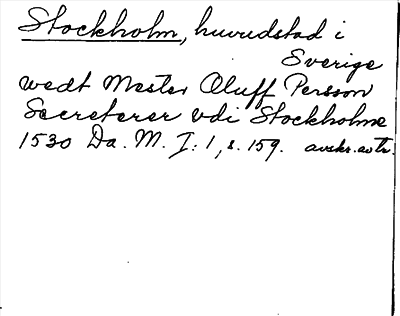 Stockholm, huvudstad i
Sverige
wedt Mester Oluff Persson
Secreterer vdi Stockholme
1530 Da. M. I: 1, s. 159. avskr. av tr.